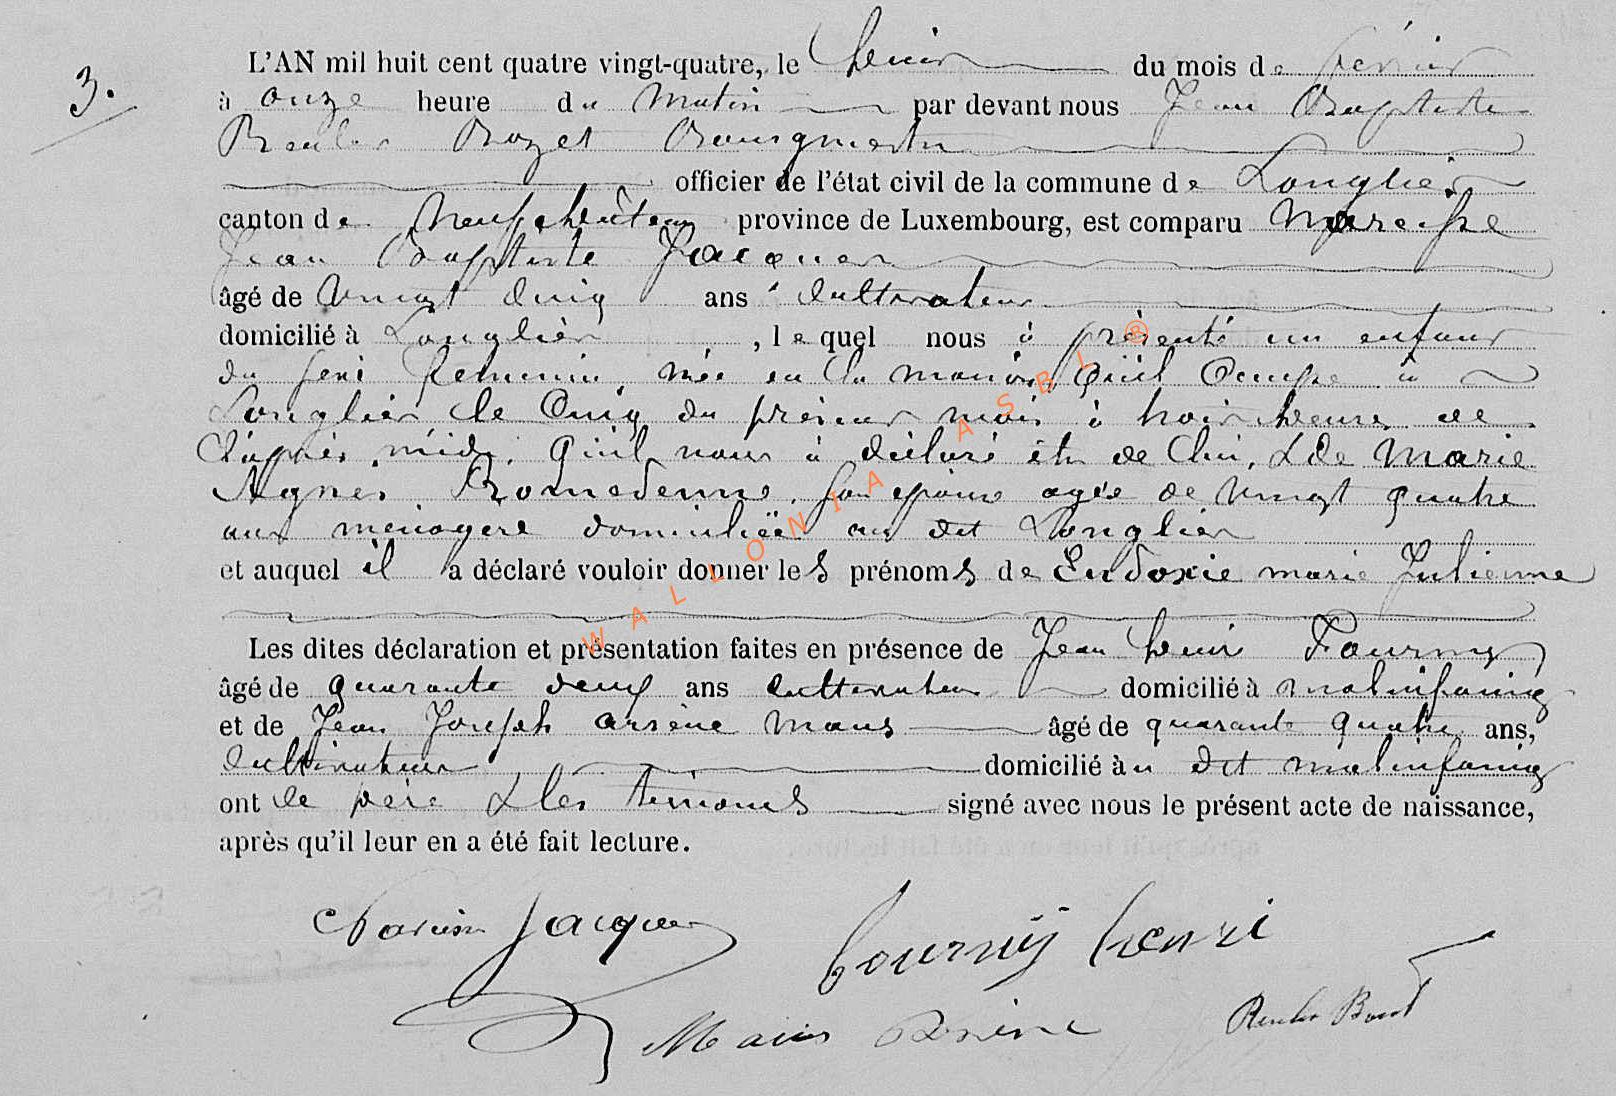 3.
L'AN mil huit cent quatre vingt-quatre, le huit du mois de février
à onze heure du matin par devant nous Jean Baptiste
Rozet Bourgmestre
officier de l'état civil de la commune de Longlier
canton de Neufchâteau province de Luxembourg, est comparu Narcisse
Jean Baptiste Jacques
âgé de Vingt Cinq ans Cultivateur
domicilié à Longlier , lequel nous à présenté un enfant
du sexe feminin, née en la maison qu'il Occupe à
Longlier le Cinq du présent mois à trois heures de
l'après midi, qu'il nous à déclaré être de lui, & de Marie
Agnes Romedenne, son épouse agée de Vingt quatre
ans ménagere domiciliée au dit Longlier
et auquel il a déclaré vouloir donner les prénoms de Eudoxie marie Julienne
Les dites déclaration et présentation faites en présence de Jean henri Fourny
âgé de quarante deux ans cultivateur domicilié à molinfaing
et de Jean Joseph arsène Maus âgé de quarante quatre ans,
Cultivateur domicilié au dit molinfaing
ont le père & les témoins signé avec nous le présent acte de naissance,
après qu'il leur en a été fait lecture.
Narcisse Jacques
fournÿ henri
WALLONIA ASBL ®